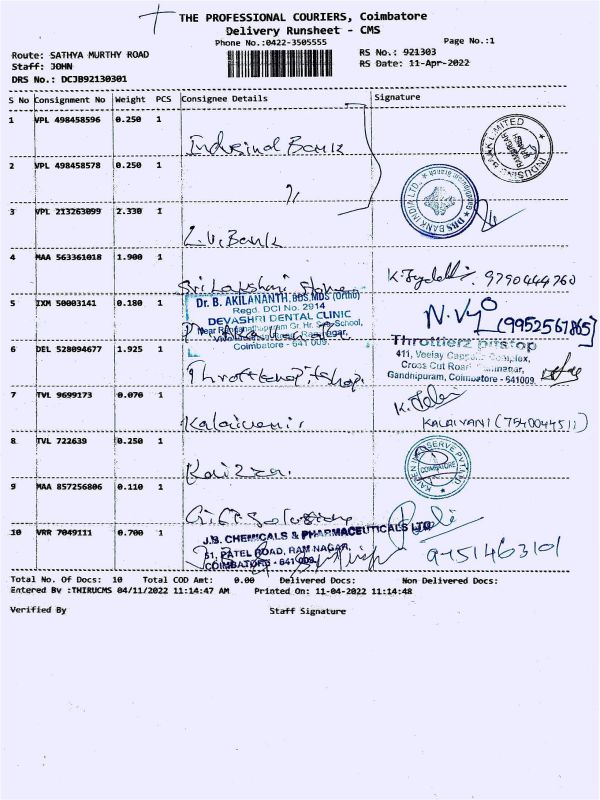 THE PROFESSIONAL COURIERS, Coimbatore
Delivery Runsheet - CMS
Phone No.:0422-3505555
Page No.:1
Route: SATHYA MURTHY ROAD
RS No.: 921303
Staff: JOHN
RS Date: 11-Apr-2022
DRS No.: DCJB92130301
S No Consignment No Weight PCS Consignee Details Signature
1 VPL 498458596 0.250 1 Indusind Bank
INDUSIND BANK LIMITED
2 VPL 498458578 0.250 1
DBS BANK INDIA LTD.
3 VPL 213263099 2.330 1 L.V.Bank
4 MAA 563361018 1.900 1 Sri Lakshmi 9790444760
5 IXM 50003141 0.180 1
Dr. B. AKILANANTH, BDS,MDS (Ortho)
Regd. DCI No. 2914
DEVASHRI DENTAL CLINIC
Coimbatore - 641 009.
(9952567865)
DEL 528094677 1.925 1
Throttlerz pitstop
411, Veelay Complex,
Cross Cut Road
Gandhipuram, Coimbatore - 641009
7 TVL 9699173 0.070 1 Kalaivani
KALAIVANI (7540044511)
8 TVL 722639 0.250 1 Kaizen
COIMBATORE
9 MAA 857256806 0.110 1
10 VRR 7049111 0.700 1
J.B. CHEMICALS & PHARMACEUTICALS LTD
51, PATEL ROAD, RAM NAGAR,
COIMBATORE - 641 009.
9751463101
Total No. Of Docs: 10 Total COD Amt: 0.00 Delivered Docs: Non Delivered Docs:
Entered By :THIRUCMS 04/11/2022 11:14:47 AM Printed On: 11-04-2022 11:14:48
Verified By Staff Signature